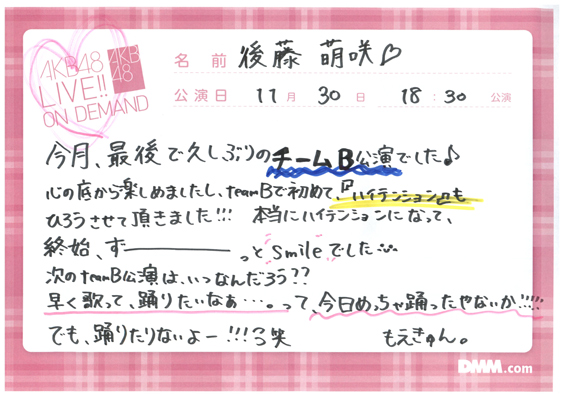 AKB48
LIVE!!
ON DEMAND
AKB
48
名 前 後藤 萌咲♡
公演日 11月 30日 18:30 公演
今月、最後で久しぶりのチームB公演でした♪
心の底から楽しめましたし、teamBで初めて、『ハイテンション』も
ひろうさせて頂きました!!! 本当にハイテンションになって、
終始、ず―――っと smileでした
次のteamB公演は、いつなんだろう??
早く歌って、踊りたいなぁ…。って、今日めっちゃ踊ったやないか!!!!!
でも、踊りたりないよー!!!笑 もえきゅん。
DMM.com